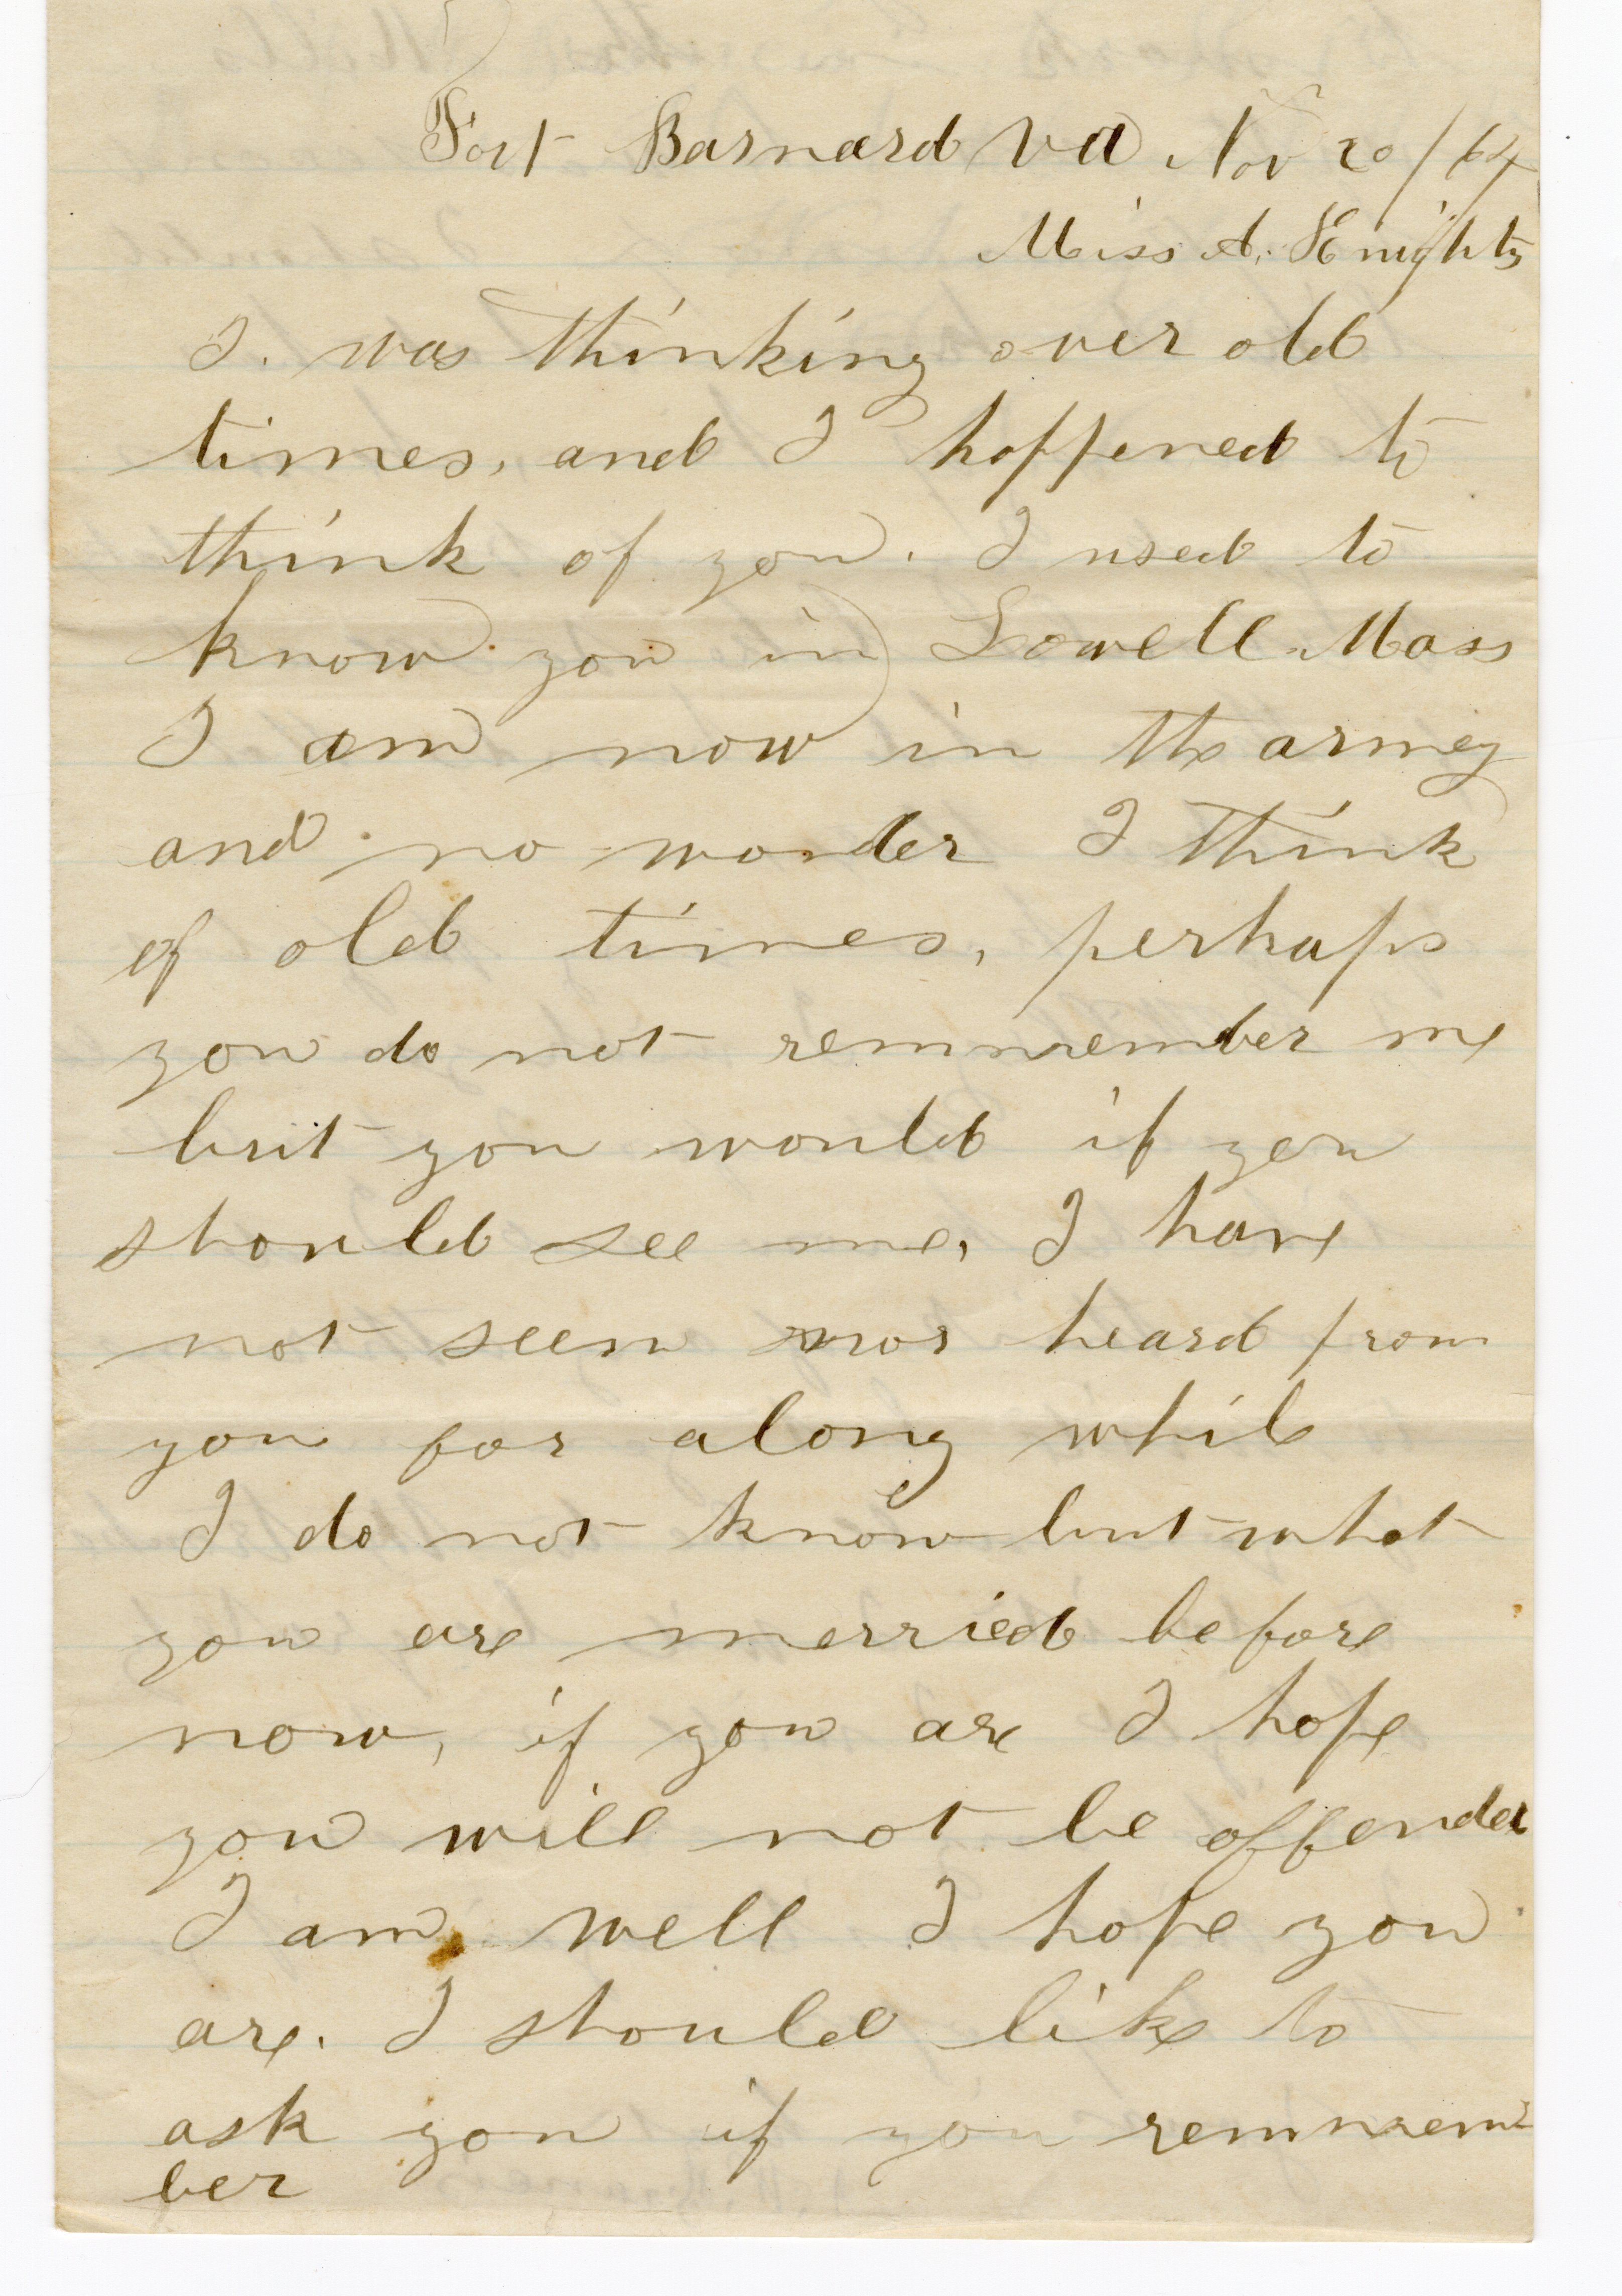 Fort Barnard Va. Nov 20/64
Miss A. Knights
I. was thinking over old
times, and I happened to
think of you. I used to
know you in Lowell Mass
I am now in the armey
and no wonder I think
of old times, perhaps
you do not remmember me
but you would if you
should see me, I have
not seen nor heard from
you for along while
I do not know but what
you are merried before
now, if you are I hope
you will not be offended
I am well I hope you
are. I should like to
ask you if you remmem
ber